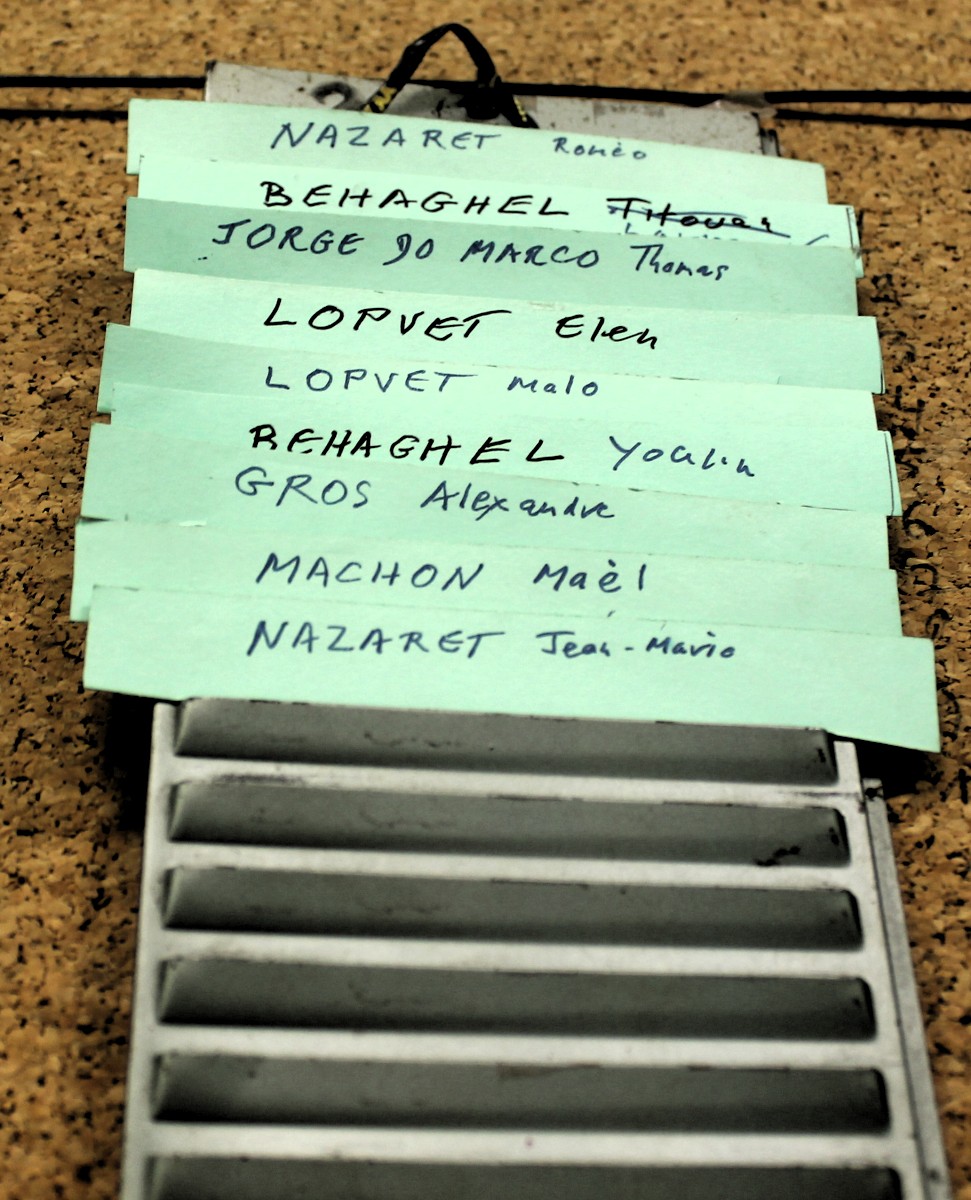 NAZARET Roméo
BEHAGHEL Titouan
JORGE DO MARCO Thomas
LOPVET Elen
LOPVET Malo
BEHAGHEL Youlin
GROS Alexandre
MACHON Maèl
NAZARET Jean-Mario